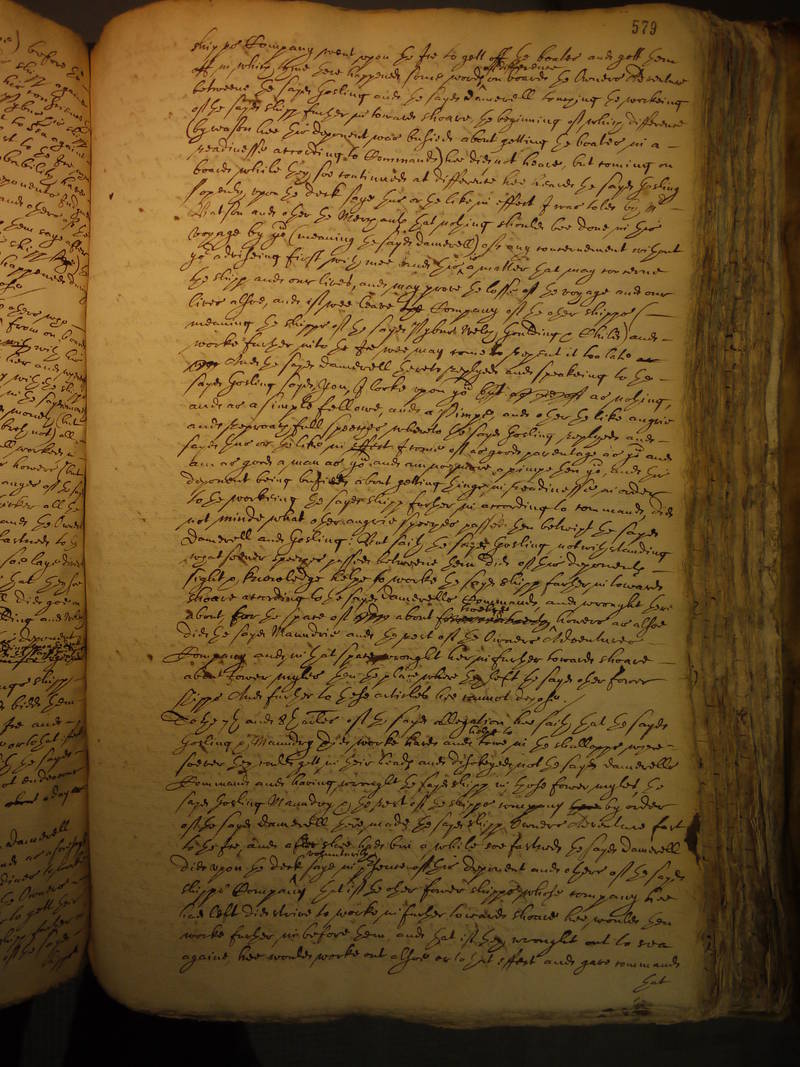 579
shipps Company went upon the Ice to gett off the boates and gett them
off in which tyme there happened some words of difference on boarde the Owners Adventure
betweene the sayd Gosling and the sayd Damerell touching the workeing
of the sayd shipp further in towards shoare, the beginning of which difference
(by reason hee this deponent was busied about getting the boates in a
readinesse according to Commands) hee did not heare, but coming on
board while they soe continued at difference hee heard the sayd Gosling
openly upon the deck saye thus or the like in effect I was told by Mr
Watson and other the Merchants that nothing should bee done in this
voyage by you (meaning the sayd Damerell) of any concernement without
you advising first with mee and this is a matter that may concerne
the shipp and our lives, and may prove the losse of the voyage and our
lives alsoe, and if wee leave the Company of the other shipps
meaning the shipps of the sayd Wyburd Nely, Goulding & Child) and
worke further into the Ice wee may come to repent it too late
And the sayd Damerell thereto replyed and speakeing to the
sayd Gosling sayd, I looke upon you as nothing,
and as a simple fellowe, and a Pimpe, and other the like angrie
and reproachfull speeches whereto the sayd Gosling replyed and
sayd thus or the like in effect I come of as good parentage as you and
am as good a man as you and am noe more a pimpe then you, and this
deponent being busied about getting things in readinesse in order
to the workeing the sayd shipp further in according to commands, did
not minde what other angrie speeches passed then betwixt the sayd
Damerell and Gosling. But saith the sayd Gosling notwithstanding
what soever speeches passed betweene them did of this deponents
sight & knowledge helpe to worke the sayd shipp further in towards
shoare according to the sayd Damerells Commands, and wrought there
about for the space of about twelve howers as alsoe
did the sayd Maundrie and the rest of the Owners Adventures
Company and in that space wrought her in further towards shoare
about fower myles then the place where they left the sayd other fower
shipps And further to these articles hee cannot depose./
To the 7th and 8th articles of the sayd allegation hee saith that the sayd
Gosling & Maundry did worke hard and helpe to towe in the shalloppe where
soever they could gett in their heads and disobeyed not the sayd Damerells
Commands and having wrought the sayd shipp in those fower myles the
sayd Gosling Maundry & the rest of the shipps company by order
of the sayd Damerell there made the sayd shipp Owners Adventure fast
to the Ice, and after shee had bin a while soe fastned the sayd Damerell
did upon the deck voluntarily saye in the presence of this deponent and others of the sayd
shipps Company that if the other fower shipps whose company hee
had left did strive to worke in further towards shoare hee would then
worke further in before them, and that if they wrought out to sea
againe hee would worke out alsoe or to that effect and gave commands
that